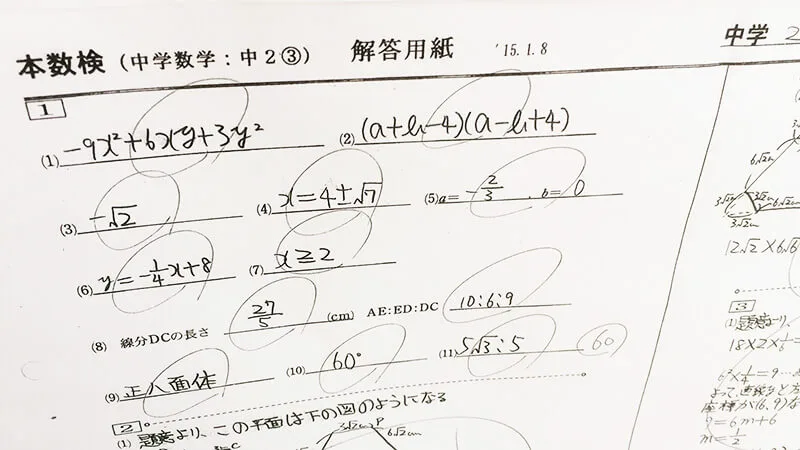 本数検（中学数学：中2③） 解答用紙 '15.1.8
1
(1) -9x²+6xy+3y² (2) (a+b-4)(a-b+4)
(3) -√2 (4) x=4±√7 (5) a= -2/3 , b= 0
(6) y=-1/4x+8 (7) x≧2
(8) 線分DCの長さ 27/5 (cm) AE:ED:DC 10:6:9
(9) 正八面体 (10) 60° (11) 5√3:5 60
2
(1) 題意より、この平面は下の図のようになる
3√2 P 6√2cm
中学 2
6√2m
3√2m 3√2cm 6√2cm
3√2cm
12√2×6√6
3
(1) 題意より、
18×2×1/6=
6²×1/4=9
よって、直線
座標が(6,9)な
9=6m+6
m=1/2